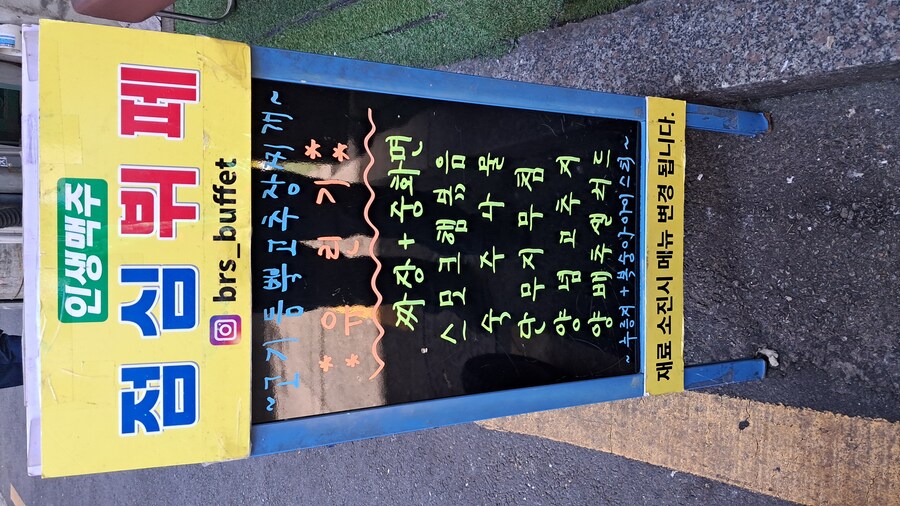 인생맥주
점심뷔페
brs_buffet
~고기듬뿍고추장찌개~
** 유린기 **
짜장+중화면
스모크햄볶음
숙주나물
단무지무침
양념고추지
양배추샐러드
~누룽지+복숭아아이스티~
재료 소진시 메뉴 변경 됩니다.